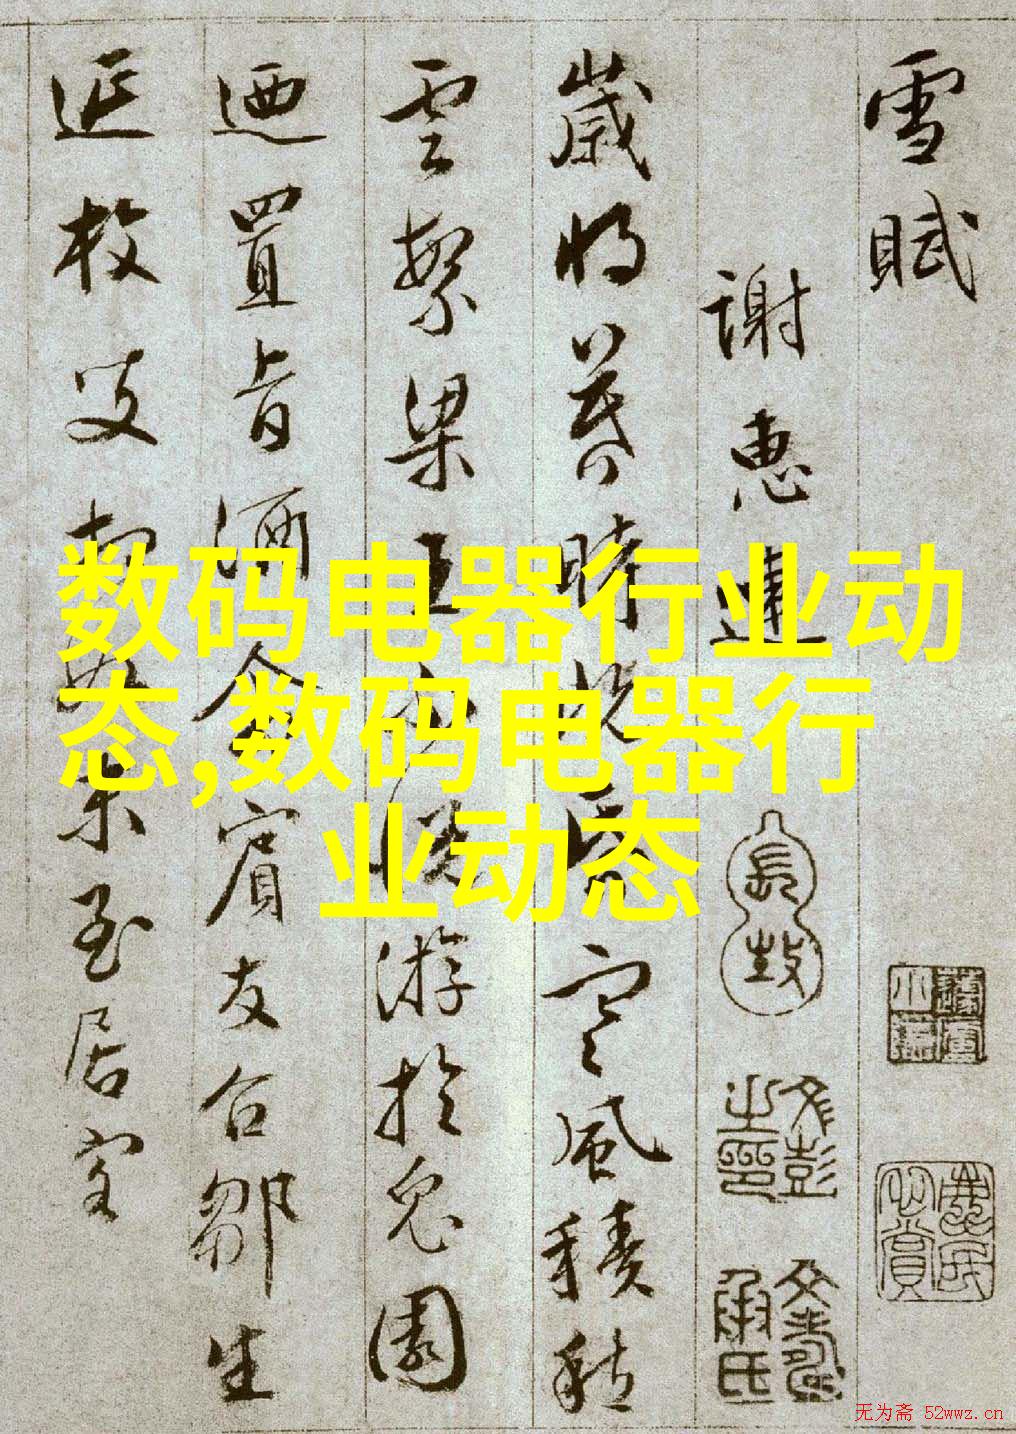 雪賦
謝惠連
歲将暮時既昏寒風積愁
雲繁梁王不悅游於兔園
迺置旨酒命賓友召鄒生
延枚叟相如末至居客
文彭之印
文壽承氏
数码电器行业动
态,数码电器行
业动态
无为斋 52wwz.cn